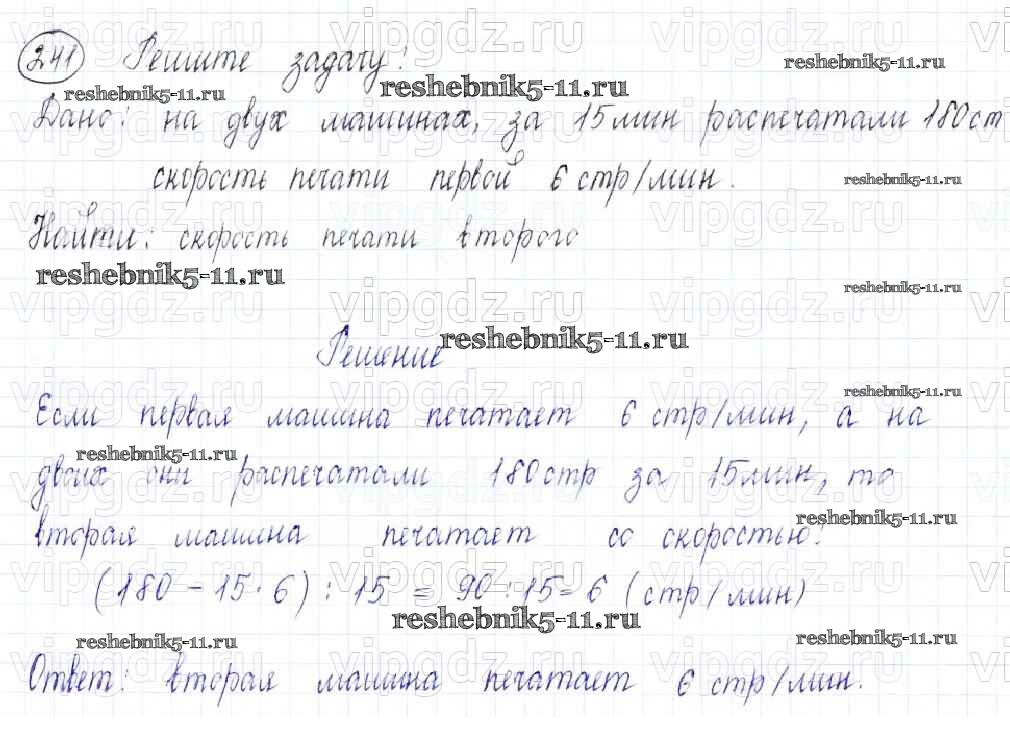 241 Решите задачу!
Дано: на двух машинах, за 15 мин распечатали 180 ст
скорость печати первой 6 стр/мин.
Найти: скорость печати второго
Решение
Если первая машина печатает 6 стр/мин, а на
двоих они распечатали 180 стр за 15 мин, то
вторая машина печатает со скоростью:
(180 - 15 · 6) : 15 = 90 : 15 = 6 (стр/мин)
Ответ: вторая машина печатает 6 стр/мин.
reshebnik5-11.ru
vipgdz.ru